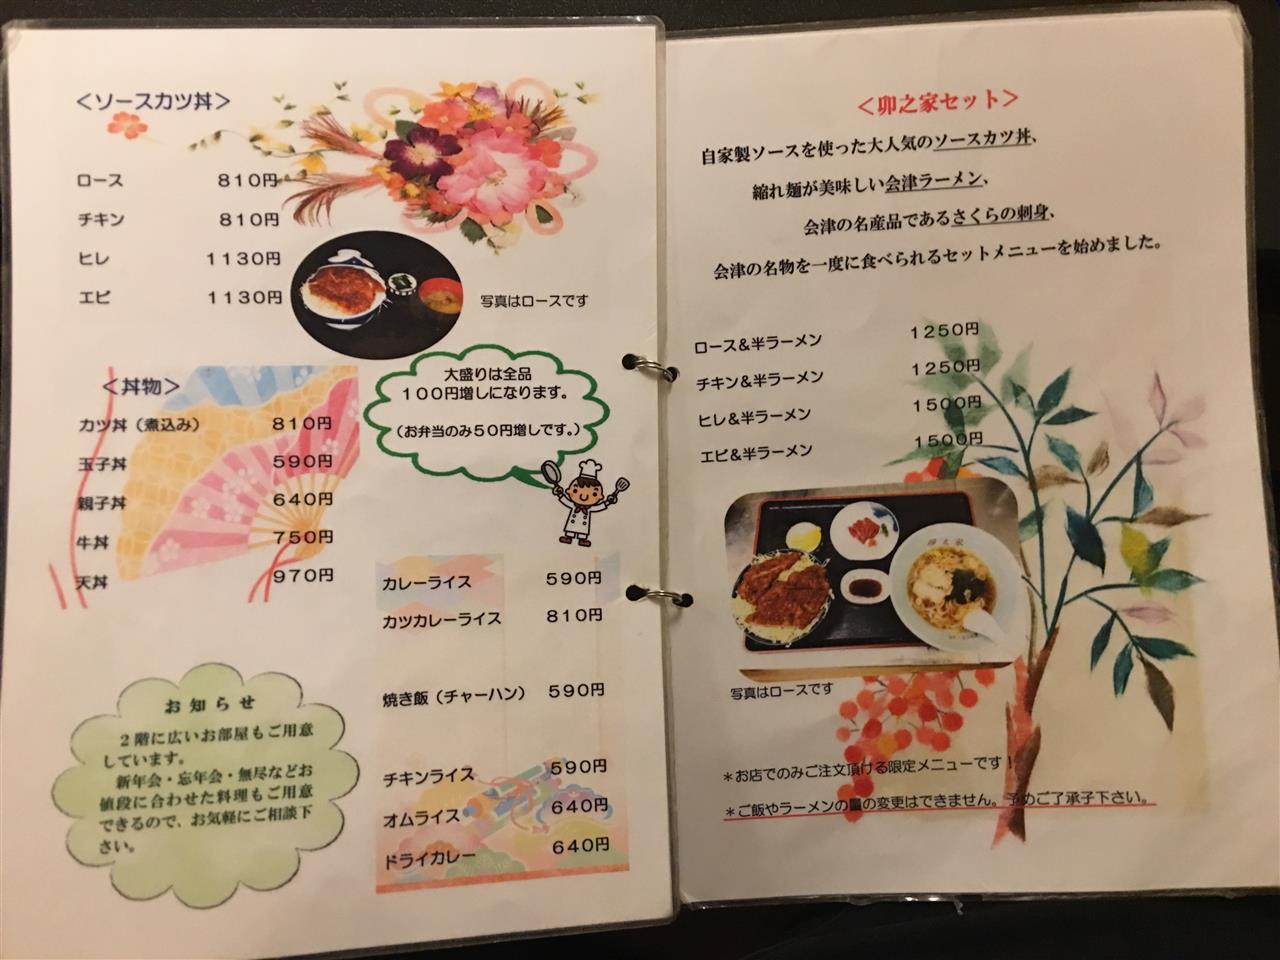 ＜ソースカツ丼＞
ロース　８１０円
チキン　８１０円
ヒレ　１１３０円
エビ　１１３０円
写真はロースです
＜丼物＞
カツ丼（煮込み）　８１０円
玉子丼　５９０円
親子丼　６４０円
牛丼　７５０円
天丼　９７０円
大盛りは全品
１００円増しになります。
（お弁当のみ５０円増しです。）
カレーライス　５９０円
カツカレーライス　８１０円
焼き飯（チャーハン）　５９０円
チキンライス　５９０円
オムライス　６４０円
ドライカレー　６４０円
お知らせ
２階に広いお部屋もご用意
しています。
新年会・忘年会・無尽などお
値段に合わせた料理もご用意
できるので、お気軽にご相談下
さい。
＜卯之家セット＞
自家製ソースを使った大人気のソースカツ丼、
縮れ麺が美味しい会津ラーメン、
会津の名産品であるさくらの刺身、
会津の名物を一度に食べられるセットメニューを始めました。
ロース＆半ラーメン　１２５０円
チキン＆半ラーメン　１２５０円
ヒレ＆半ラーメン　１５００円
エビ＆半ラーメン　１５００円
卯之家
写真はロースです
＊お店でのみご注文頂ける限定メニューです！
＊ご飯やラーメンの量の変更はできません。予めご了承子下さい。